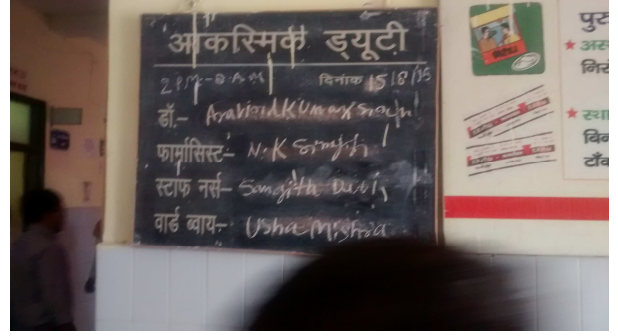 आकस्मिक ड्यूटी
2 PM - 8 AM
दिनांक 15/8/15
डॉ.- Aravind Kumar Singh
फार्मासिस्ट- N.K Singh
स्टाफ नर्स- Sangita Devi
वार्ड ब्वाय:- Usha Mishra